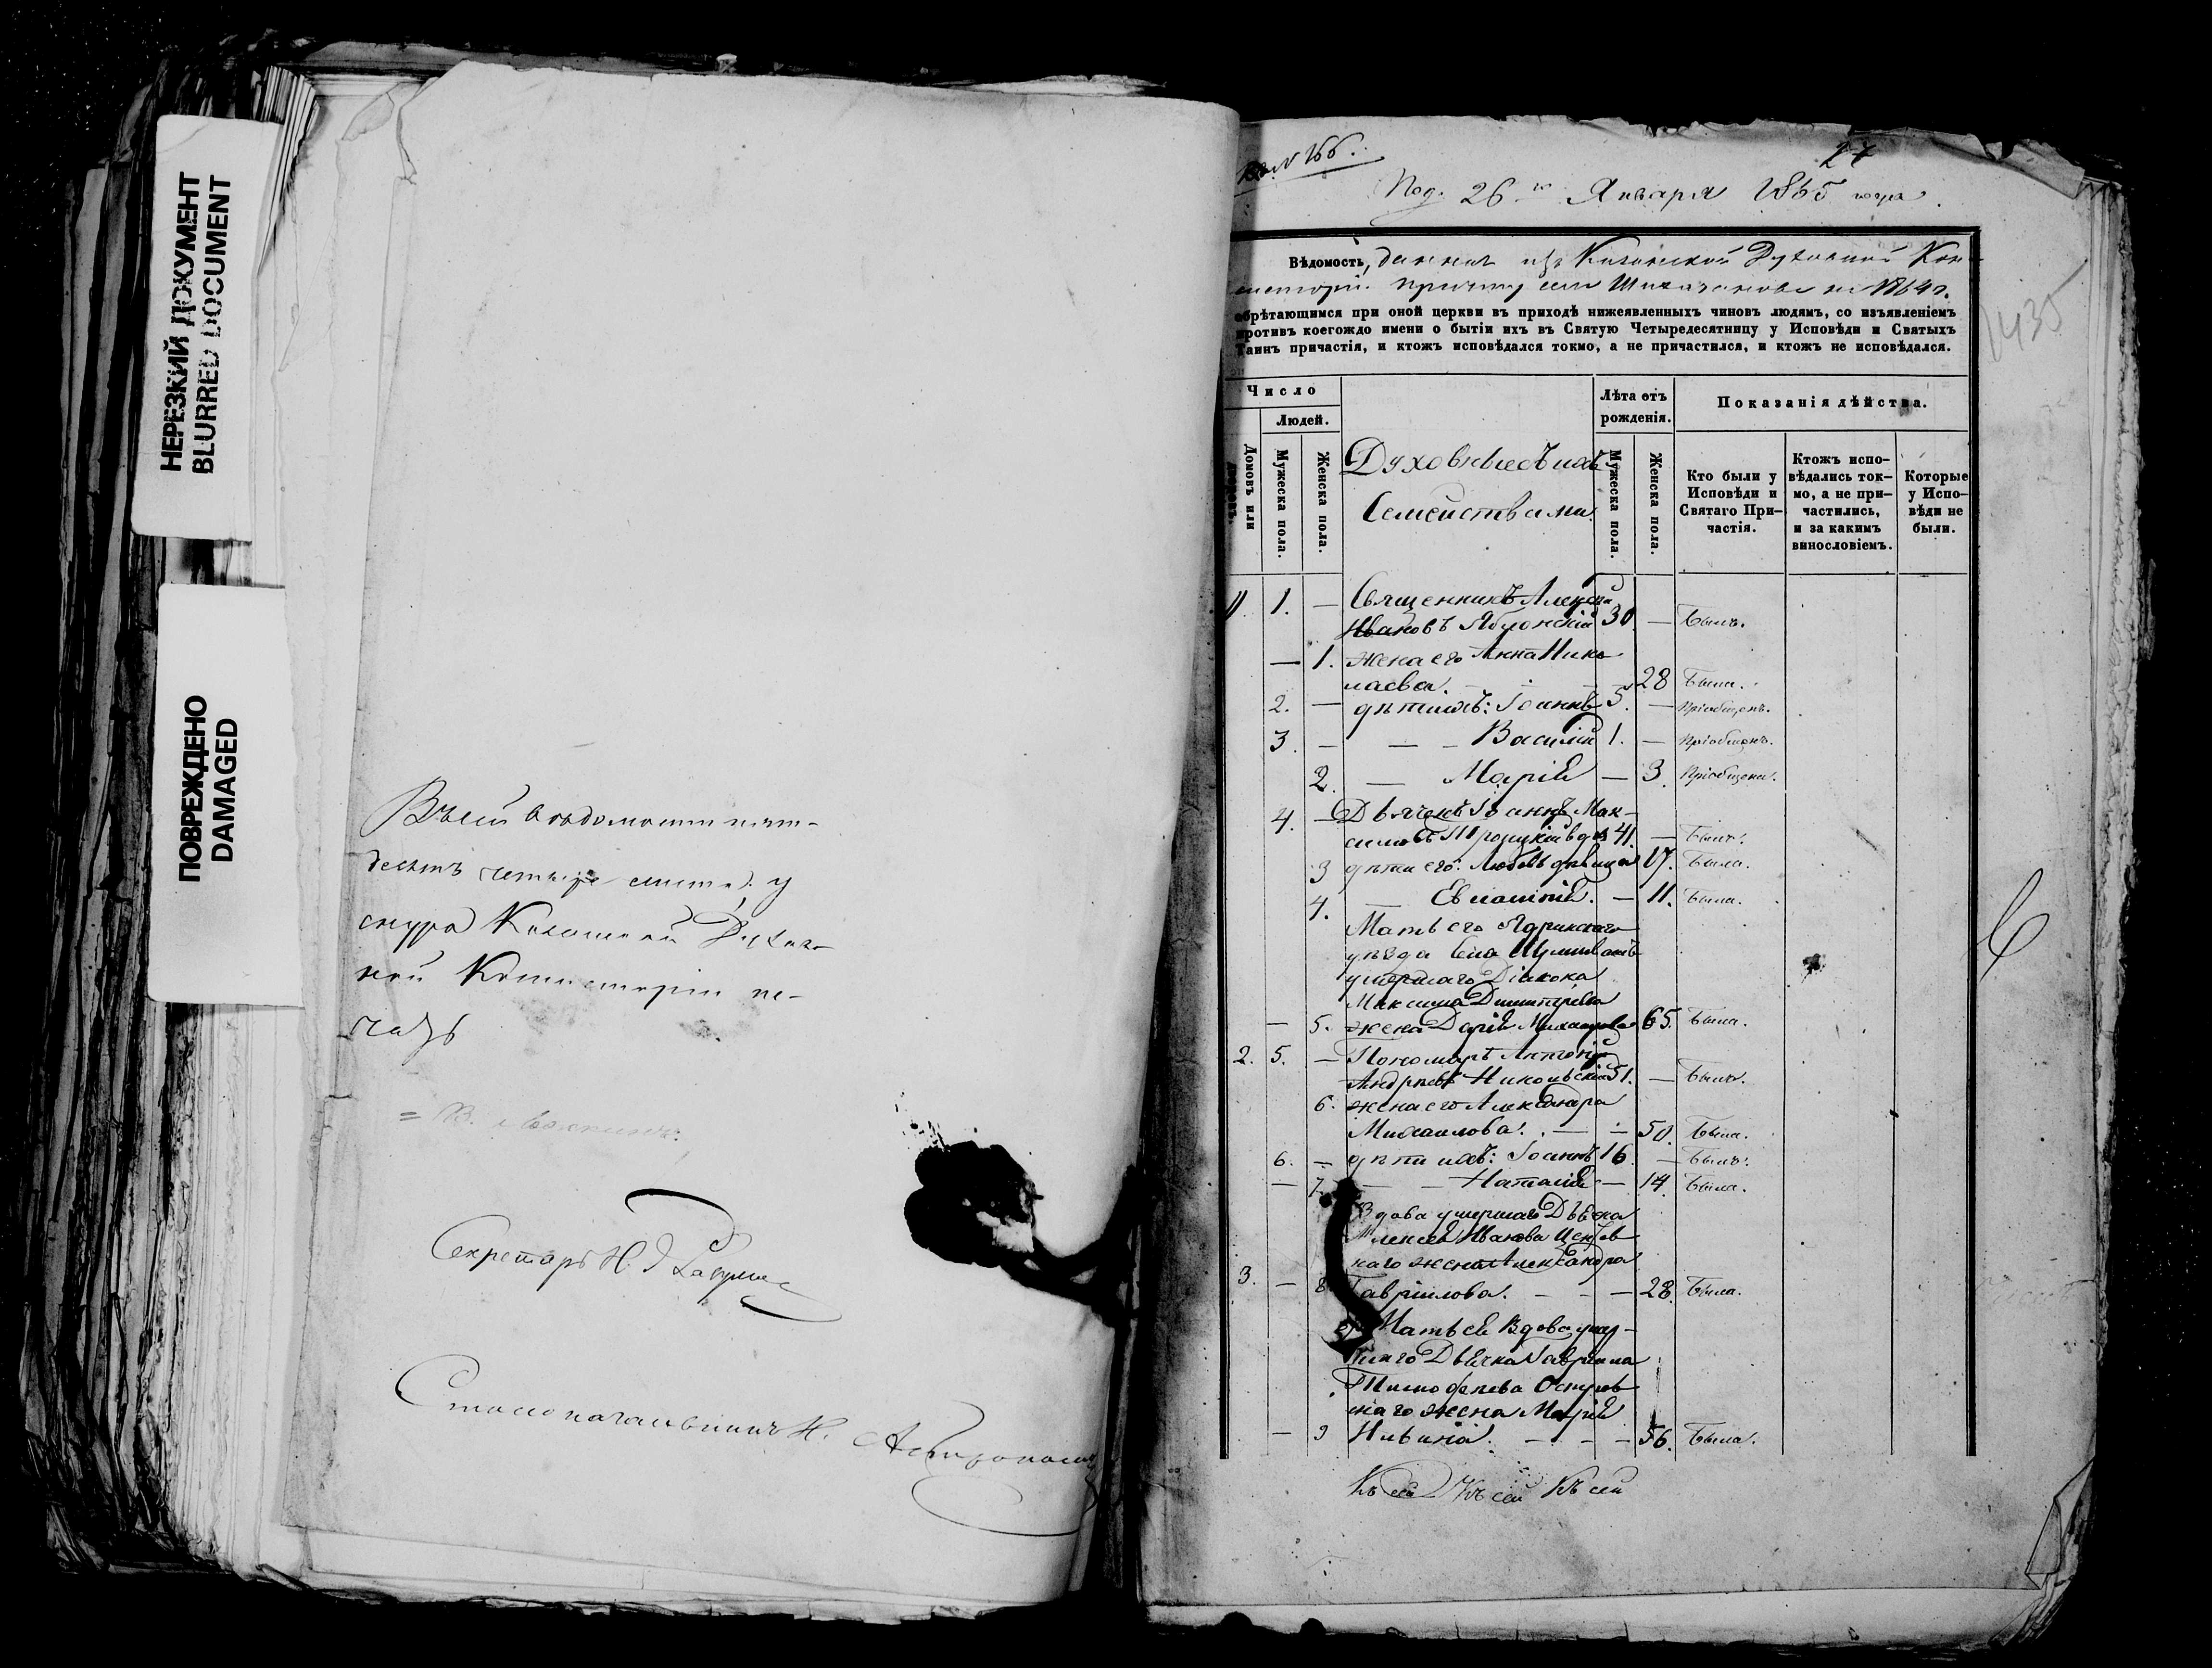 НЕРЕЗКИЙ ДОКУМЕНТ
BLURRED DOCUMENT
ПОВРЕЖДЕНО
DAMAGED
Въ сей ведомости пять-
десятъ четыре листа, у
снура Казанской Духов-
ной Консисторіи пе-
чать
Секретарь Н.
Столоначальникъ Н.
№ 266.
27
Под. 26го Января 1865 года.
1435
Вѣдомость, данная изъ Казанской Духовной Кон-
систоріи причту села на 1864 г.
обрѣтающимся при оной церкви въ приходѣ нижеявленныхъ чиновъ людямъ, со изъявленіемъ
противъ коегождо имени о бытіи ихъ въ Святую Четыредесятницу у Исповѣди и Святыхъ
Таинъ причастія, и ктожъ исповѣдался токмо, а не причастился, и ктожъ не исповѣдался.
Число
Людей.
Домовъ или дворовъ.
Мужеска пола.
Женска пола.
Духовные съ ихъ
Семействами.
Лѣта отъ рожденія.
Мужеска пола.
Женска пола.
Показанія дѣйства.
Кто были у Исповѣди и Святаго При-частія.
Ктожъ испо-вѣдались ток-мо, а не при-частились, и за какимъ винословіемъ.
Которые у Испо-вѣди не были.
1. 1. — Священникъ Алексѣй
Ивановъ Яблонскій 30 — Былъ.
— 1. жена его Анна Нико
лаева. — 28 Была.
2. — дѣти ихъ: Іоаннъ 5. — Пріобщенъ.
3. — — — Василій 1. — Пріобщенъ.
2. — Марія — 3. Пріобщена.
4. — Дьячекъ Іоаннъ Мак-
симовъ Троицкій вдов 41. — Былъ.
3 дѣти его: Любовь дѣвица 17. Была.
4. — Евлампія. — 11. Была.
Мать его Ядринскаго
уѣзда села
умершаго Діакона
Максима Димитріева
— 5. жена Дарія 65. Была.
2. 5. — Пономарь Антоній
Андреевъ Никольскій 51. — Былъ.
6. жена его Александра
Михаилова. — 50. Была.
6. — дѣти ихъ: Іоаннъ 16. — Былъ.
— 7. — — Наталія — 14. Была.
Вдова умершаго Дьячка
Алексея Иванова
каго жена Александра
3. — 8. Гавріилова. — — — 28. Была.
Мать ея Вдова умер-
шаго Дьячка Гавріила
Тимофеева Остров
скаго жена Марія
— 9 Ильина. — — — 56. Была.
Къ сей Къ сей Къ сей